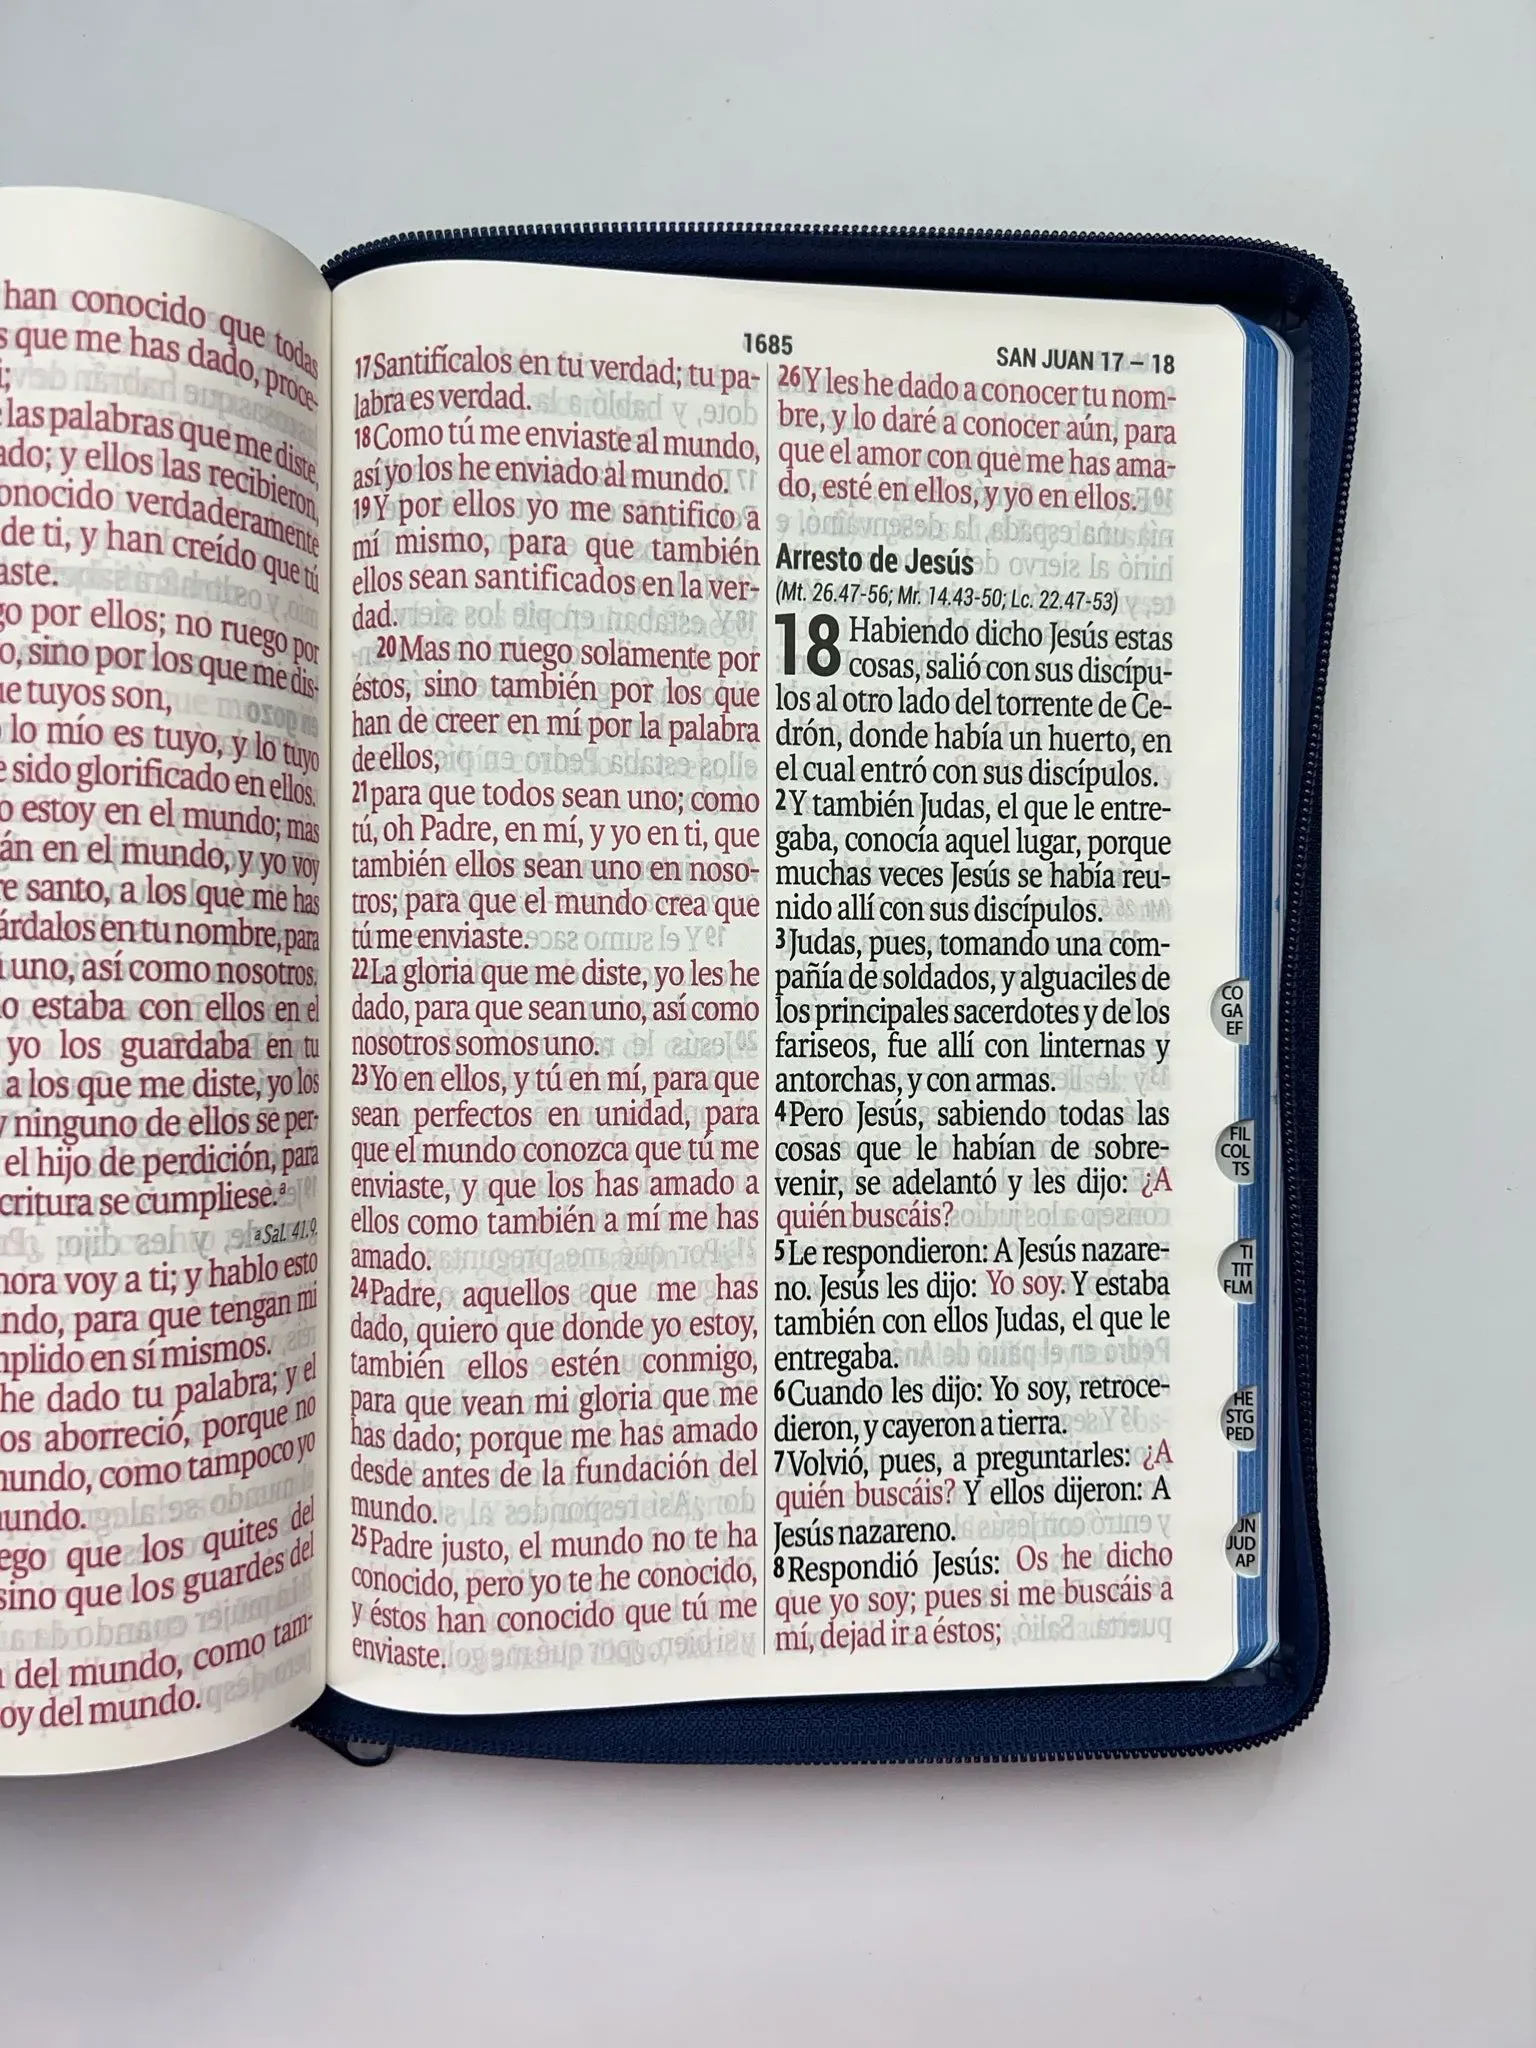 han conocido que todas
que me has dado, proce-
las palabras que me diste,
ado; y ellos las recibieron,
onocido verdaderamente
de ti, y han creído que tú
aste.
go por ellos; no ruego por
o, sino por los que me dis-
ue tuyos son,
lo mío es tuyo, y lo tuyo
e sido glorificado en ellos.
o estoy en el mundo; mas
án en el mundo, y yo voy
re santo, a los que me has
árdalos en tu nombre, para
uno, así como nosotros.
o estaba con ellos en el
yo los guardaba en tu
a los que me diste, yo los
y ninguno de ellos se per-
el hijo de perdición, para
critura se cumpliese.ª
ª Sal. 41.9.
hora voy a ti; y hablo esto
ndo, para que tengan mi
nplido en sí mismos.
he dado tu palabra; y el
os aborreció, porque no
mundo, como tampoco yo
undo.
ego que los quites del
sino que los guardes del
del mundo, como tam-
oy del mundo.
1685
SAN JUAN 17 – 18
17 Santifícalos en tu verdad; tu pa-
labra es verdad.
18 Como tú me enviaste al mundo,
así yo los he enviado al mundo.
19 Y por ellos yo me santifico a
mí mismo, para que también
ellos sean santificados en la ver-
dad.
20 Mas no ruego solamente por
éstos, sino también por los que
han de creer en mí por la palabra
de ellos,
21 para que todos sean uno; como
tú, oh Padre, en mí, y yo en ti, que
también ellos sean uno en noso-
tros; para que el mundo crea que
tú me enviaste.
22 La gloria que me diste, yo les he
dado, para que sean uno, así como
nosotros somos uno.
23 Yo en ellos, y tú en mí, para que
sean perfectos en unidad, para
que el mundo conozca que tú me
enviaste, y que los has amado a
ellos como también a mí me has
amado.
24 Padre, aquellos que me has
dado, quiero que donde yo estoy,
también ellos estén conmigo,
para que vean mi gloria que me
has dado; porque me has amado
desde antes de la fundación del
mundo.
25 Padre justo, el mundo no te ha
conocido, pero yo te he conocido,
y éstos han conocido que tú me
enviaste.
26 Y les he dado a conocer tu nom-
bre, y lo daré a conocer aún, para
que el amor con que me has ama-
do, esté en ellos, y yo en ellos.
Arresto de Jesús
(Mt. 26.47-56; Mr. 14.43-50; Lc. 22.47-53)
18 Habiendo dicho Jesús estas
cosas, salió con sus discípu-
los al otro lado del torrente de Ce-
drón, donde había un huerto, en
el cual entró con sus discípulos.
2 Y también Judas, el que le entre-
gaba, conocía aquel lugar, porque
muchas veces Jesús se había reu-
nido allí con sus discípulos.
3 Judas, pues, tomando una com-
pañía de soldados, y alguaciles de
los principales sacerdotes y de los
fariseos, fue allí con linternas y
antorchas, y con armas.
4 Pero Jesús, sabiendo todas las
cosas que le habían de sobre-
venir, se adelantó y les dijo: ¿A
quién buscáis?
5 Le respondieron: A Jesús nazare-
no. Jesús les dijo: Yo soy. Y estaba
también con ellos Judas, el que le
entregaba.
6 Cuando les dijo: Yo soy, retroce-
dieron, y cayeron a tierra.
7 Volvió, pues, a preguntarles: ¿A
quién buscáis? Y ellos dijeron: A
Jesús nazareno.
8 Respondió Jesús: Os he dicho
que yo soy; pues si me buscáis a
mí, dejad ir a éstos;
CO
GA
EF
FIL
COL
TS
TI
TIT
FLM
HE
STG
PED
JN
JUD
AP